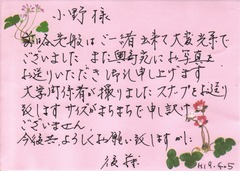 小野様
前略 先般はご一緒出来て大変光栄で
ございました また 早々にお写真を
お送りいただき御礼申し上げます
大学関係者が撮りましたスナップをお送り
致します サイズがまちまちで申し訳
ございません
今後共よろしくお願い致します
後藤
H18.4.5